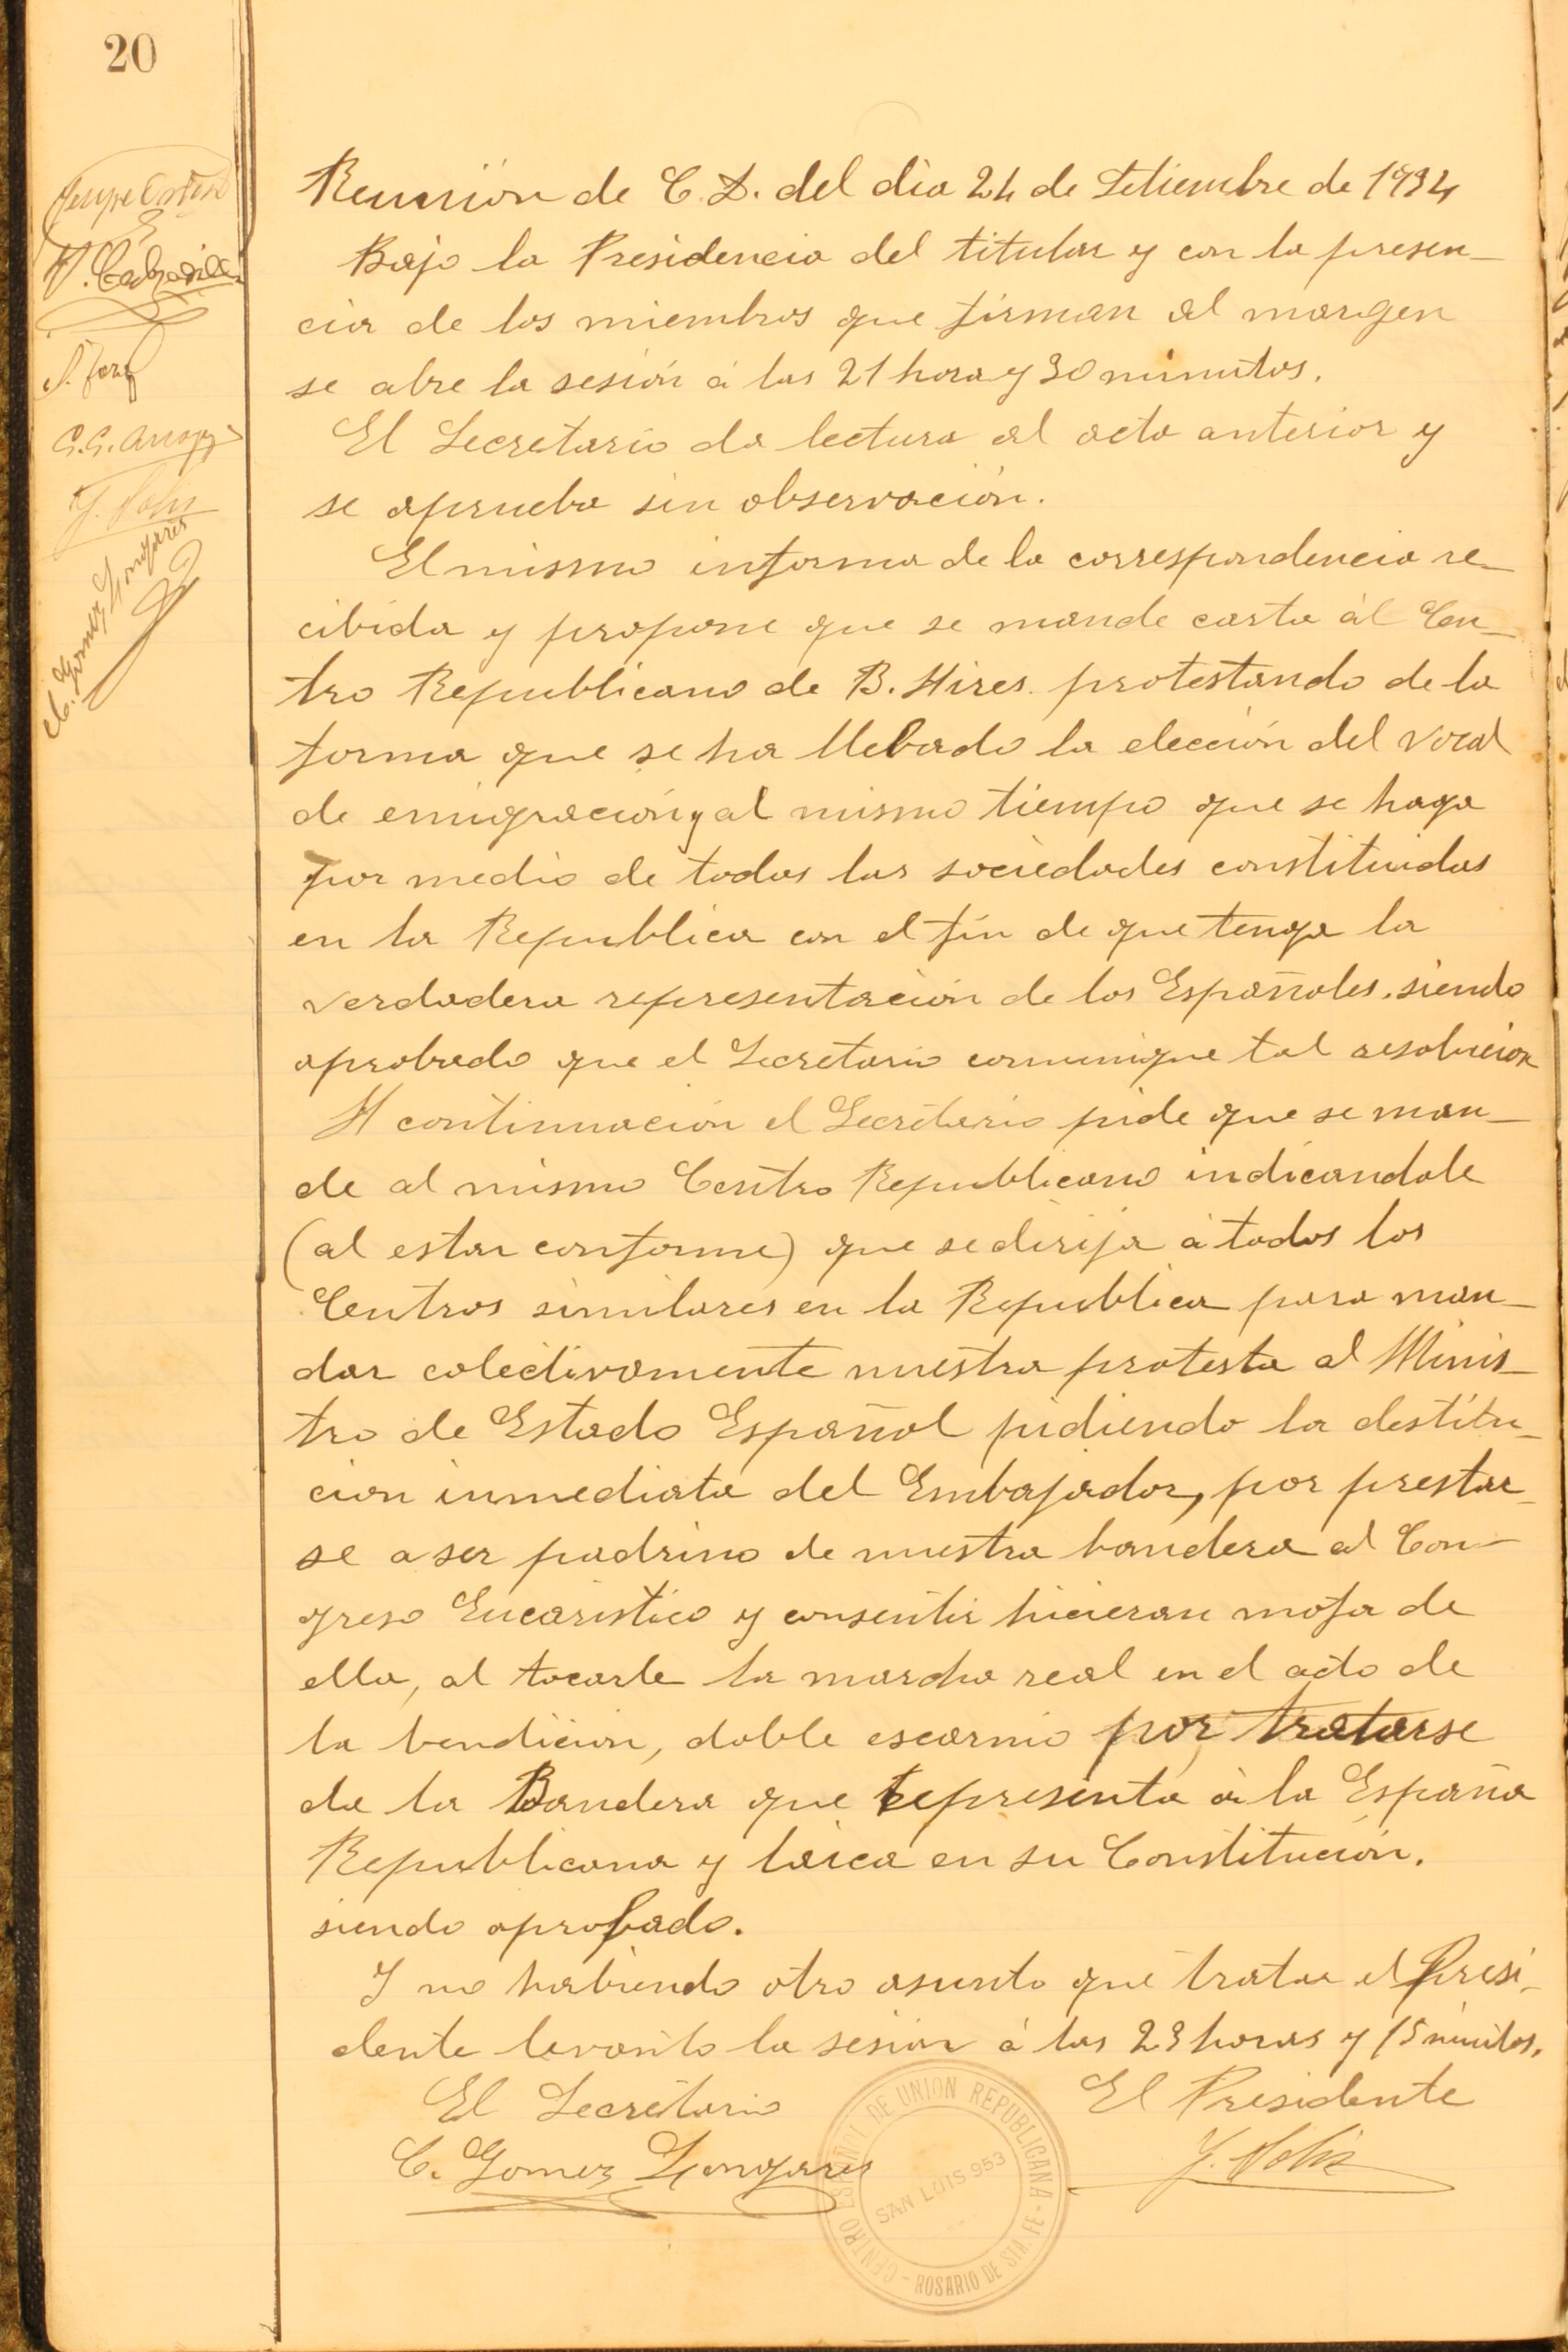 20
Reunión de C. D. del dia 24 de Setiembre de 1934
Bajo la Presidencia del titular y con la presen-
cia de los miembros que firman al margen
se abre la sesión á las 21 hora y 30 minutos.
El Secretario da lectura al acta anterior y
se aprueba sin observación.
El mismo informa de la correspondencia re-
cibida y propone que se mande carta ál Cen-
tro Republicano de B. Aires. protestando de la
forma que se ha llebado la elección del vocal
de emigración y al mismo tiempo que se haga
por medio de todas las sociedades constituidas
en la Republica con el fin de que tenga la
verdadera representación de los Españoles. siendo
aprobado que el Secretario comunique tal resolución
A continuación el Secretario pide que se man-
de al mismo Centro Republicano indicandole
(al estar conforme) que se dirija á todos los
Centros similares en la Republica para man-
dar colectivamente nuestra protesta al Minis-
tro de Estado Español pidiendo la destitu-
cion inmediata del Embajador, por prestar-
se a ser padrino de nuestra bandera al Con-
greso Eucaristico y consentir hicieran mofa de
ella, al tocarle la marcha real en el acto de
la bendición, doble escarnio por tratarse
de la Bandera que representa á la España
Republicana y laica en su Constitución.
siendo aprobado.
Y no habiendo otro asunto que tratar el Presi-
dente levantó la sesión á las 23 horas y 15 minutos.
El Secretario
El Presidente
C. Gomez Longares
J. Solis
CENTRO ESPAÑOL DE UNION REPUBLICANA - ROSARIO DE STA. FE -
SAN LUIS 953
J. Solis
C. Gomez Longares